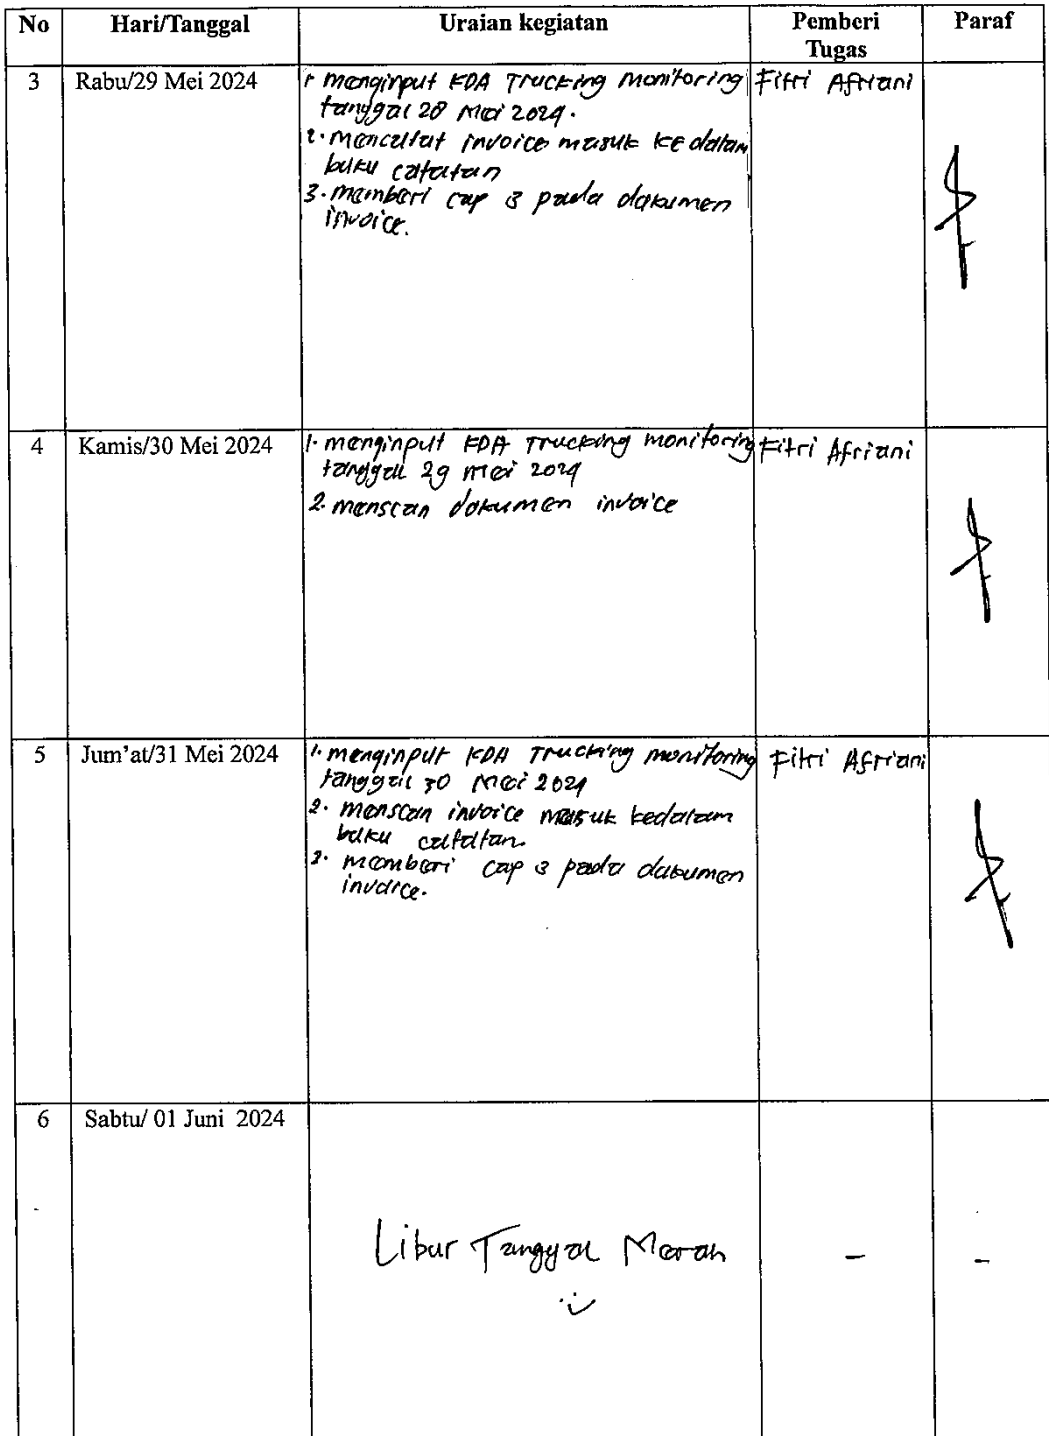 No Hari/Tanggal Uraian kegiatan Pemberi Tugas Paraf
3 Rabu/29 Mei 2024 1. menginput KDA Trucking monitoring Fitri Afriani
tanggal 28 Mei 2024.
2. mencatat invoice masuk ke dalam
buku catatan
3. memberi cap 3 pada dokumen
invoice.
4 Kamis/30 Mei 2024 1. menginput KDA Trucking monitoring Fitri Afriani
tanggal 29 mei 2024
2. menscan dokumen invoice
5 Jum'at/31 Mei 2024 1. menginput KDA Trucking monitoring Fitri Afriani
tanggal 30 Mei 2024
2. menscan invoice masuk kedalam
buku catatan.
3. memberi cap 3 pada dokumen
invoice.
6 Sabtu/ 01 Juni 2024
Libur Tanggal Merah - -